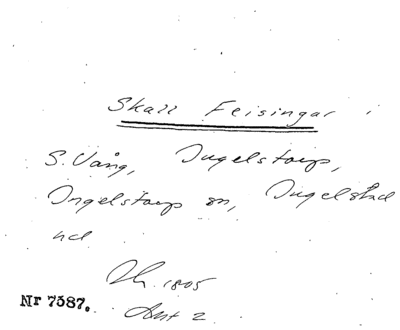 Skall Feisingar i
S. Vång, Ingelstorp,
Ingelstorp sn, Ingelstad
hd
Th. 1805
Ant 2
Nr 7587.